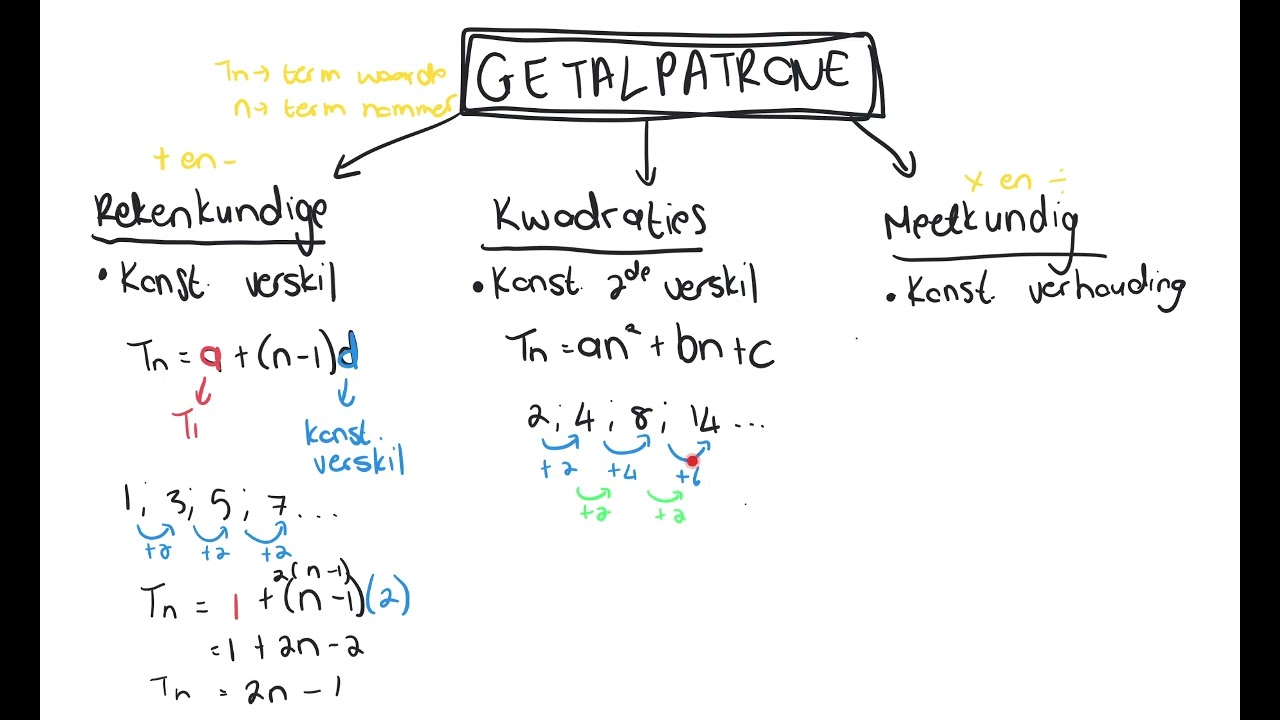 GETALPATRONE
Tn → term waarde
n → term nommer
+ en -
Rekenkundige
• Konst. verskil
Tn = a + (n-1)d
T1
konst.
verskil
1; 3; 5; 7...
+2 +2 +2
2(n-1)
Tn = 1 + (n-1)(2)
= 1 + 2n - 2
Tn = 2n - 1
Kwadraties
• Konst. 2de verskil
Tn = an² + bn + c
2; 4; 8; 14 ...
+2 +4 +6
+2 +2
x en ÷
Meetkundig
• Konst. verhouding